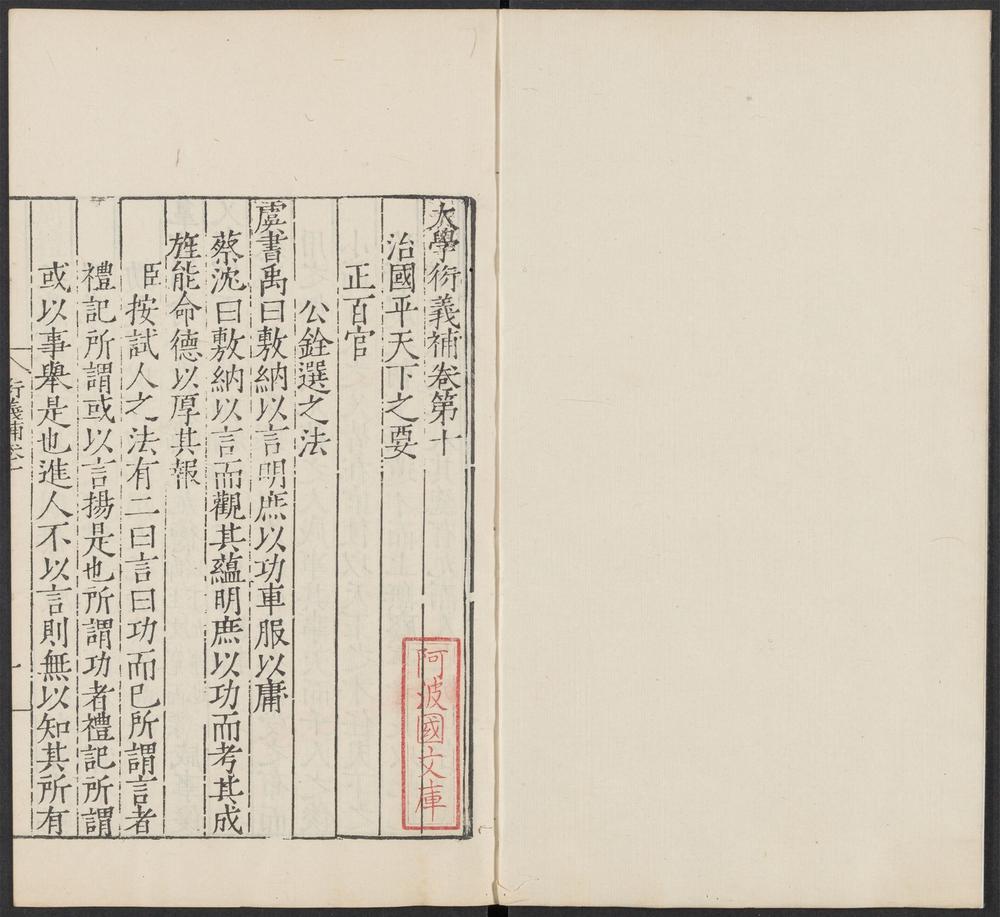 大學衍義補卷第十
治國平天下之要
正百官
公銓選之法
虞書禹曰敷納以言明庶以功車服以庸
蔡沈曰敷納以言而觀其蘊明庶以功而考其成
旌能命德以厚其報
臣按試人之法有二曰言曰功而已所謂言者
禮記所謂或以言揚是也所謂功者禮記所謂
或以事舉是也進人不以言則無以知其所有
衍義補卷十
一
阿波國文庫